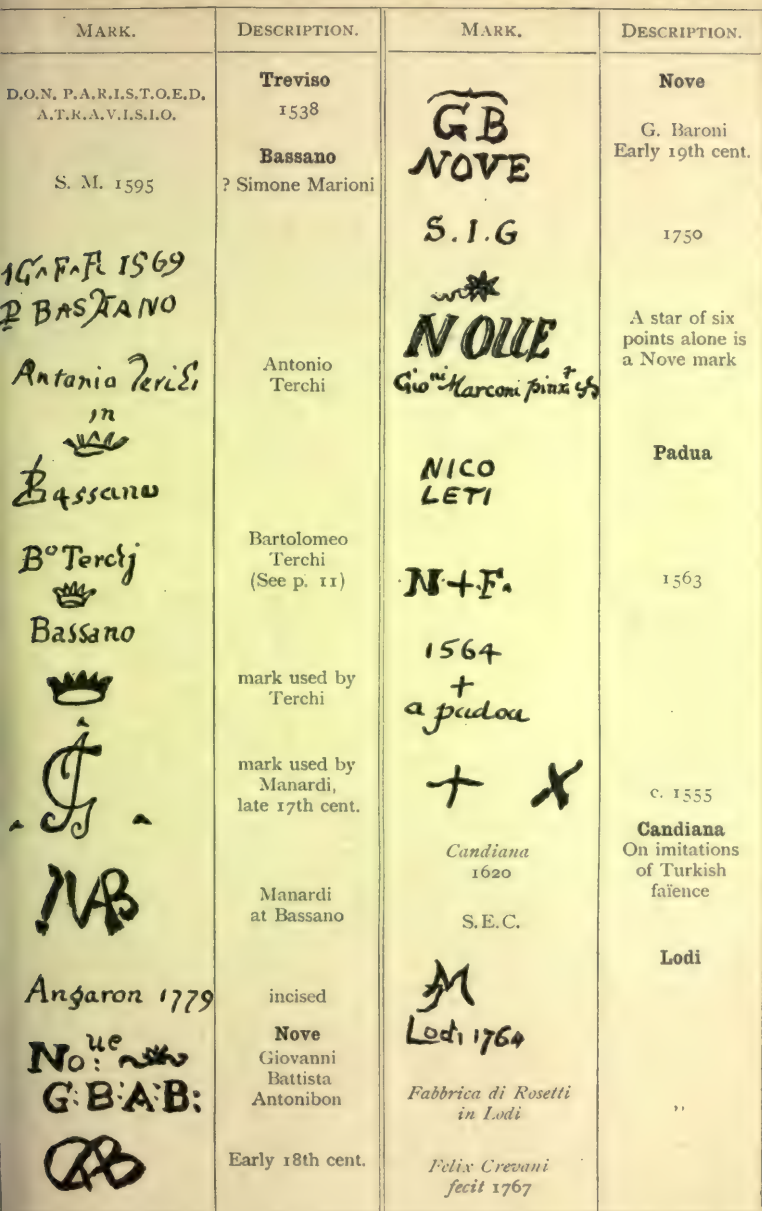 MARK.
DESCRIPTION.
D.O.N. P.A.R.I.S.T.O.E.D.
A.T.R.A.V.I.S.I.O.
Treviso
1538
Bassano
S. M. 1595
? Simone Marioni
1569
BASSANO
Antonio Terchi
in
Bassano
Antonio
Terchi
Bº Terchj
Bassano
Bartolomeo
Terchi
(See p. 11)
mark used by
Terchi
mark used by
Manardi,
late 17th cent.
Manardi
at Bassano
Angaron 1779
incised
Nove
No:ue
G:B:A:B:
Giovanni
Battista
Antonibon
Early 18th cent.
MARK.
DESCRIPTION.
Nove
GB
NOVE
G. Baroni
Early 19th cent.
S.I.G
1750
NOUE
Gioni Marconi pinxt
A star of six
points alone is
a Nove mark
Padua
NICO
LETI
N+F.
1563
1564
+
a padoa
+ X
c. 1555
Candiana
1620
S.E.C.
Candiana
On imitations
of Turkish
faïence
Lodi
Lodi 1764
Fabbrica di Rosetti
in Lodi
,,
Felix Crevani
fecit 1767